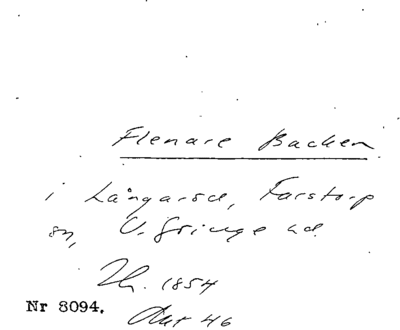 Flenare Backen
i Långaröd, Farstorp
sn, V. Göinge hd.
Th. 1854
Nr 8094.
Akt 46